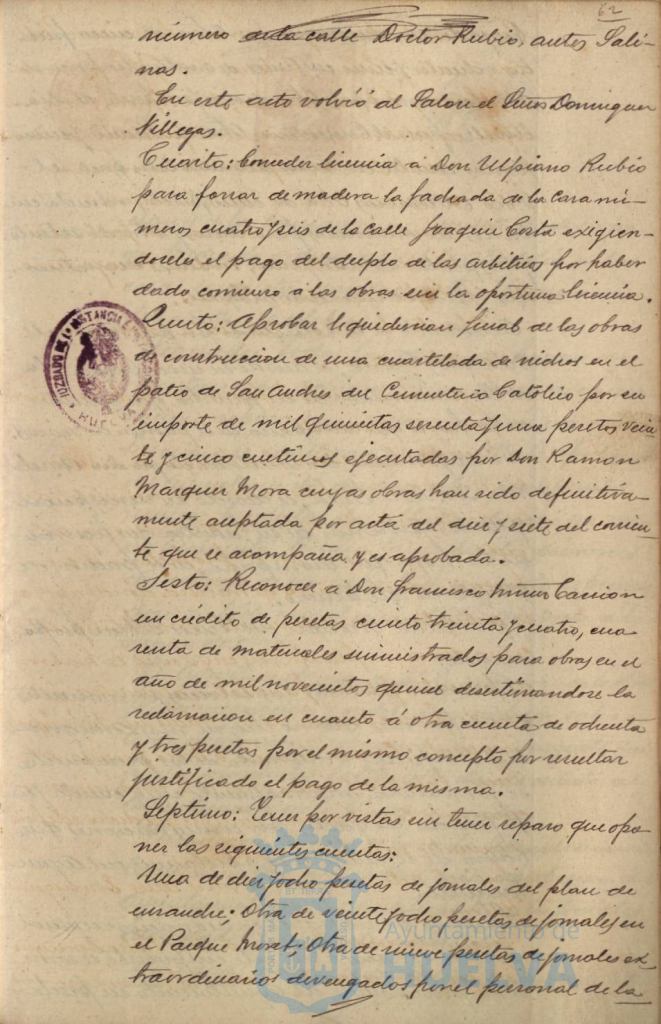 62
número ocho calle Doctor Rubio, antes Sali-
nas.
En este acto volvió al Salon el Señor Dominguez
Villegas.
Cuarto: Conceder licencia á Don Ulpiano Rubio
para forrar de madera la fachada de la casa nú-
meros cuatro y seis de la calle Joaquin Costa exigien-
dosele el pago del duplo de los arbitrios por haber
dado comienzo á las obras sin la oportuna licencia.
Quinto: Aprobar liquidacion final de las obras
de construccion de una cuartelada de nichos en el
patio de San Andres del Cementerio Catolico por su
importe de mil quinientas sesenta y una pesetas vein-
te y cinco centimos ejecutadas por Don Ramon
Marquez Mora cuyas obras han sido definitiva-
mente aceptada por acta del diez y siete del corrien-
te que se acompaña y es aprobada.
Sesto: Reconocer á Don Francisco Carrion
un crédito de pesetas ciento treinta y cuatro, cua
renta de materiales suministrados para obras en el
año de mil novecientos quince desestimandose la
reclamacion en cuanto á otra cuenta de ochenta
y tres pesetas por el mismo concepto por resultar
justificado el pago de la misma.
Séptimo: Tener por vistas sin tener reparo que opo-
ner las siguientes cuentas:
Una de diez y ocho pesetas de jornales del plan de
ensanche; Otra de veinte y ocho pesetas de jornales en
el Parque Moret; Otra de nueve pesetas de jornales ex-
traordinarios devengados por el personal de la
JUZGADO DE 1ª INSTANCIA
HUELVA
Ayuntamiento de
HUELVA